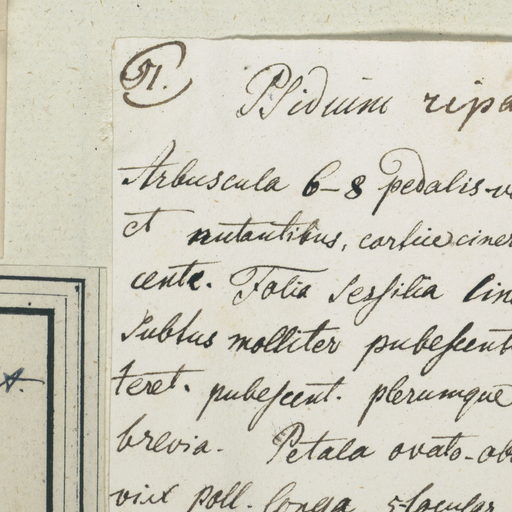 51.
Psidium ripa
Arbuscula 6-8 pedalis
et nutantibus, cortice ciner
cente. Folia sessilia lin
subtus molliter pubescent
teret. pubescent. plerumque
brevia. Petala ovato-ob
vix poll. longa 5-locular